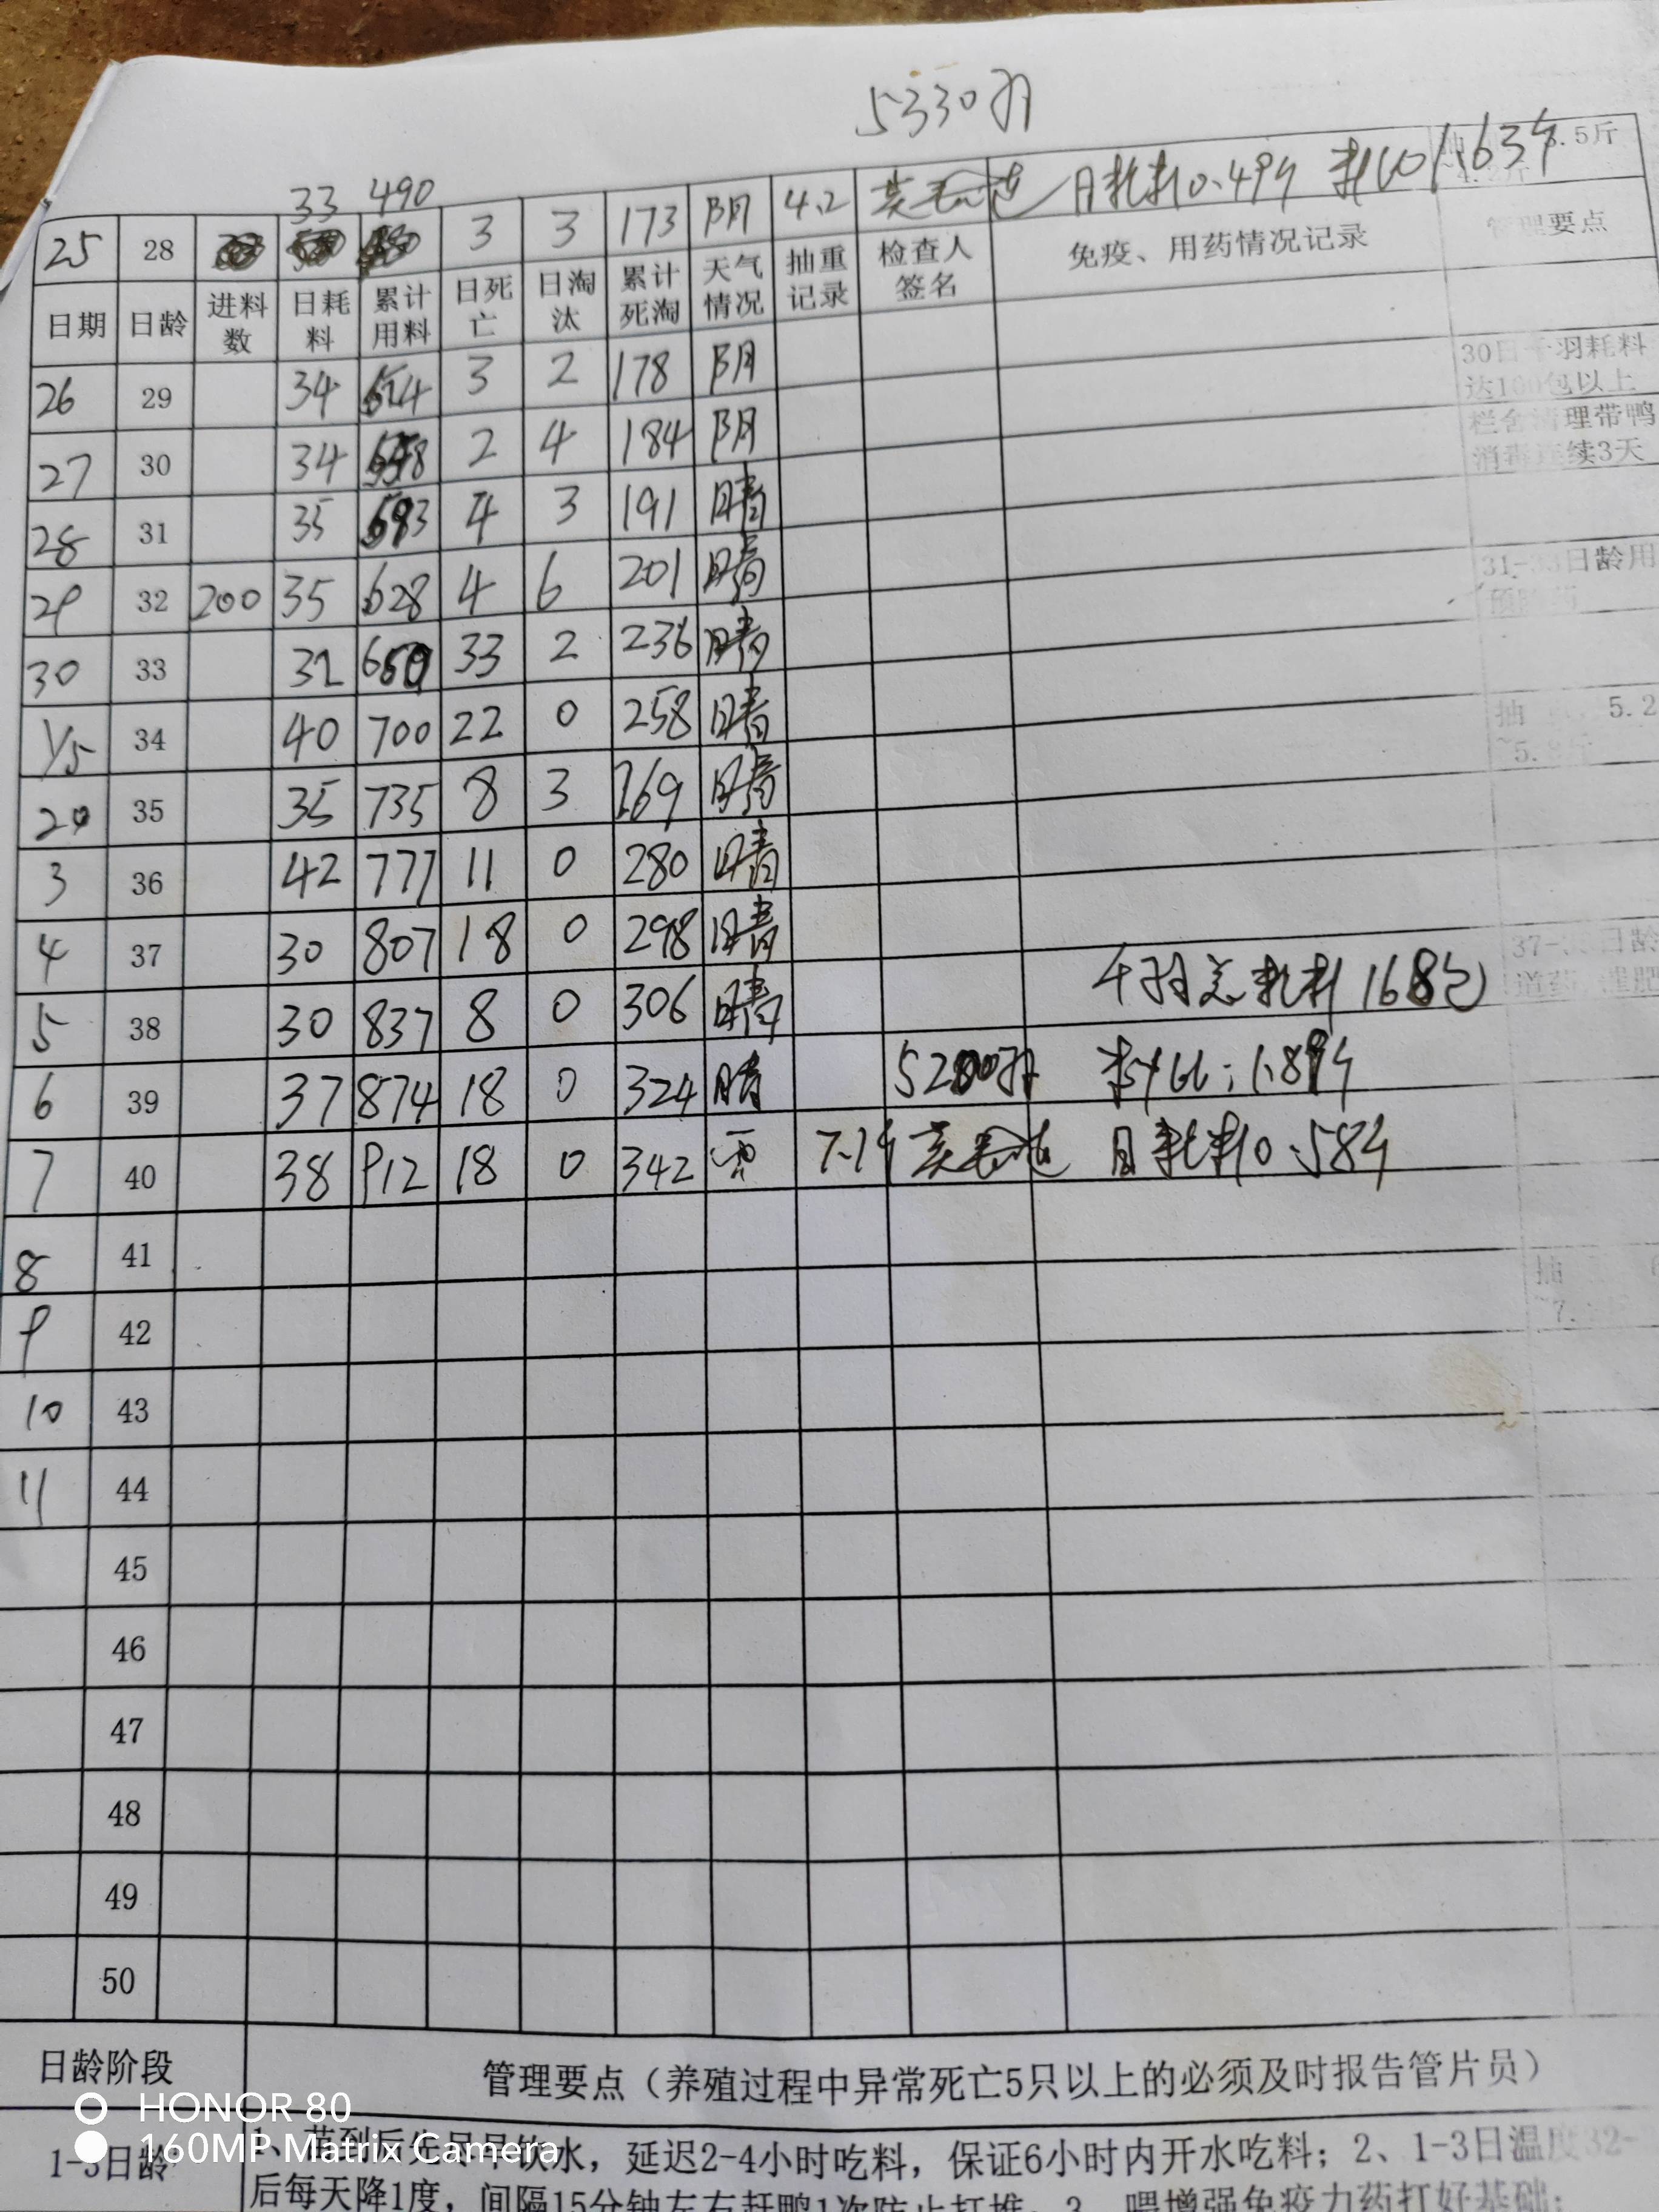 5330羽
33 490
25 28 3 3 173 阴 4.2 日耗料0.49斤 料比1.63斤
日期 日龄 进料数 日耗料 累计用料 日死亡 日淘汰 累计死淘 天气情况 抽重记录 检查人签名 免疫、用药情况记录 管理要点
26 29 34 524 3 2 178 阴 30日千羽耗料达100包以上
27 30 34 558 2 4 184 阴 栏舍清理带鸭消毒连续3天
28 31 35 593 4 3 191 晴
29 32 200 35 628 4 6 201 晴 31-33日龄用
30 33 32 660 33 2 236 晴
1/5 34 40 700 22 0 258 晴 抽 5.2
2 35 35 735 8 3 269 晴
3 36 42 777 11 0 280 晴
4 37 30 807 18 0 298 晴
千羽总耗料168包
5 38 30 837 8 0 306 晴
6 39 37 874 18 0 324 晴 5200羽 料比:1.89斤
7 40 38 912 18 0 342 雨 7.1斤 日耗料0.58斤
8 41
9 42
10 43
11 44
45
46
47
48
49
50
日龄阶段 管理要点（养殖过程中异常死亡5只以上的必须及时报告管片员）
HONOR 80
160MP Matrix Camera
1-3日龄 1、苗到后先尽早饮水，延迟2-4小时吃料，保证6小时内开水吃料；2、1-3日温度32-
后每天降1度，间隔15分钟左右赶鸭1次防止打堆；3、喂增强免疫力药打好基础；